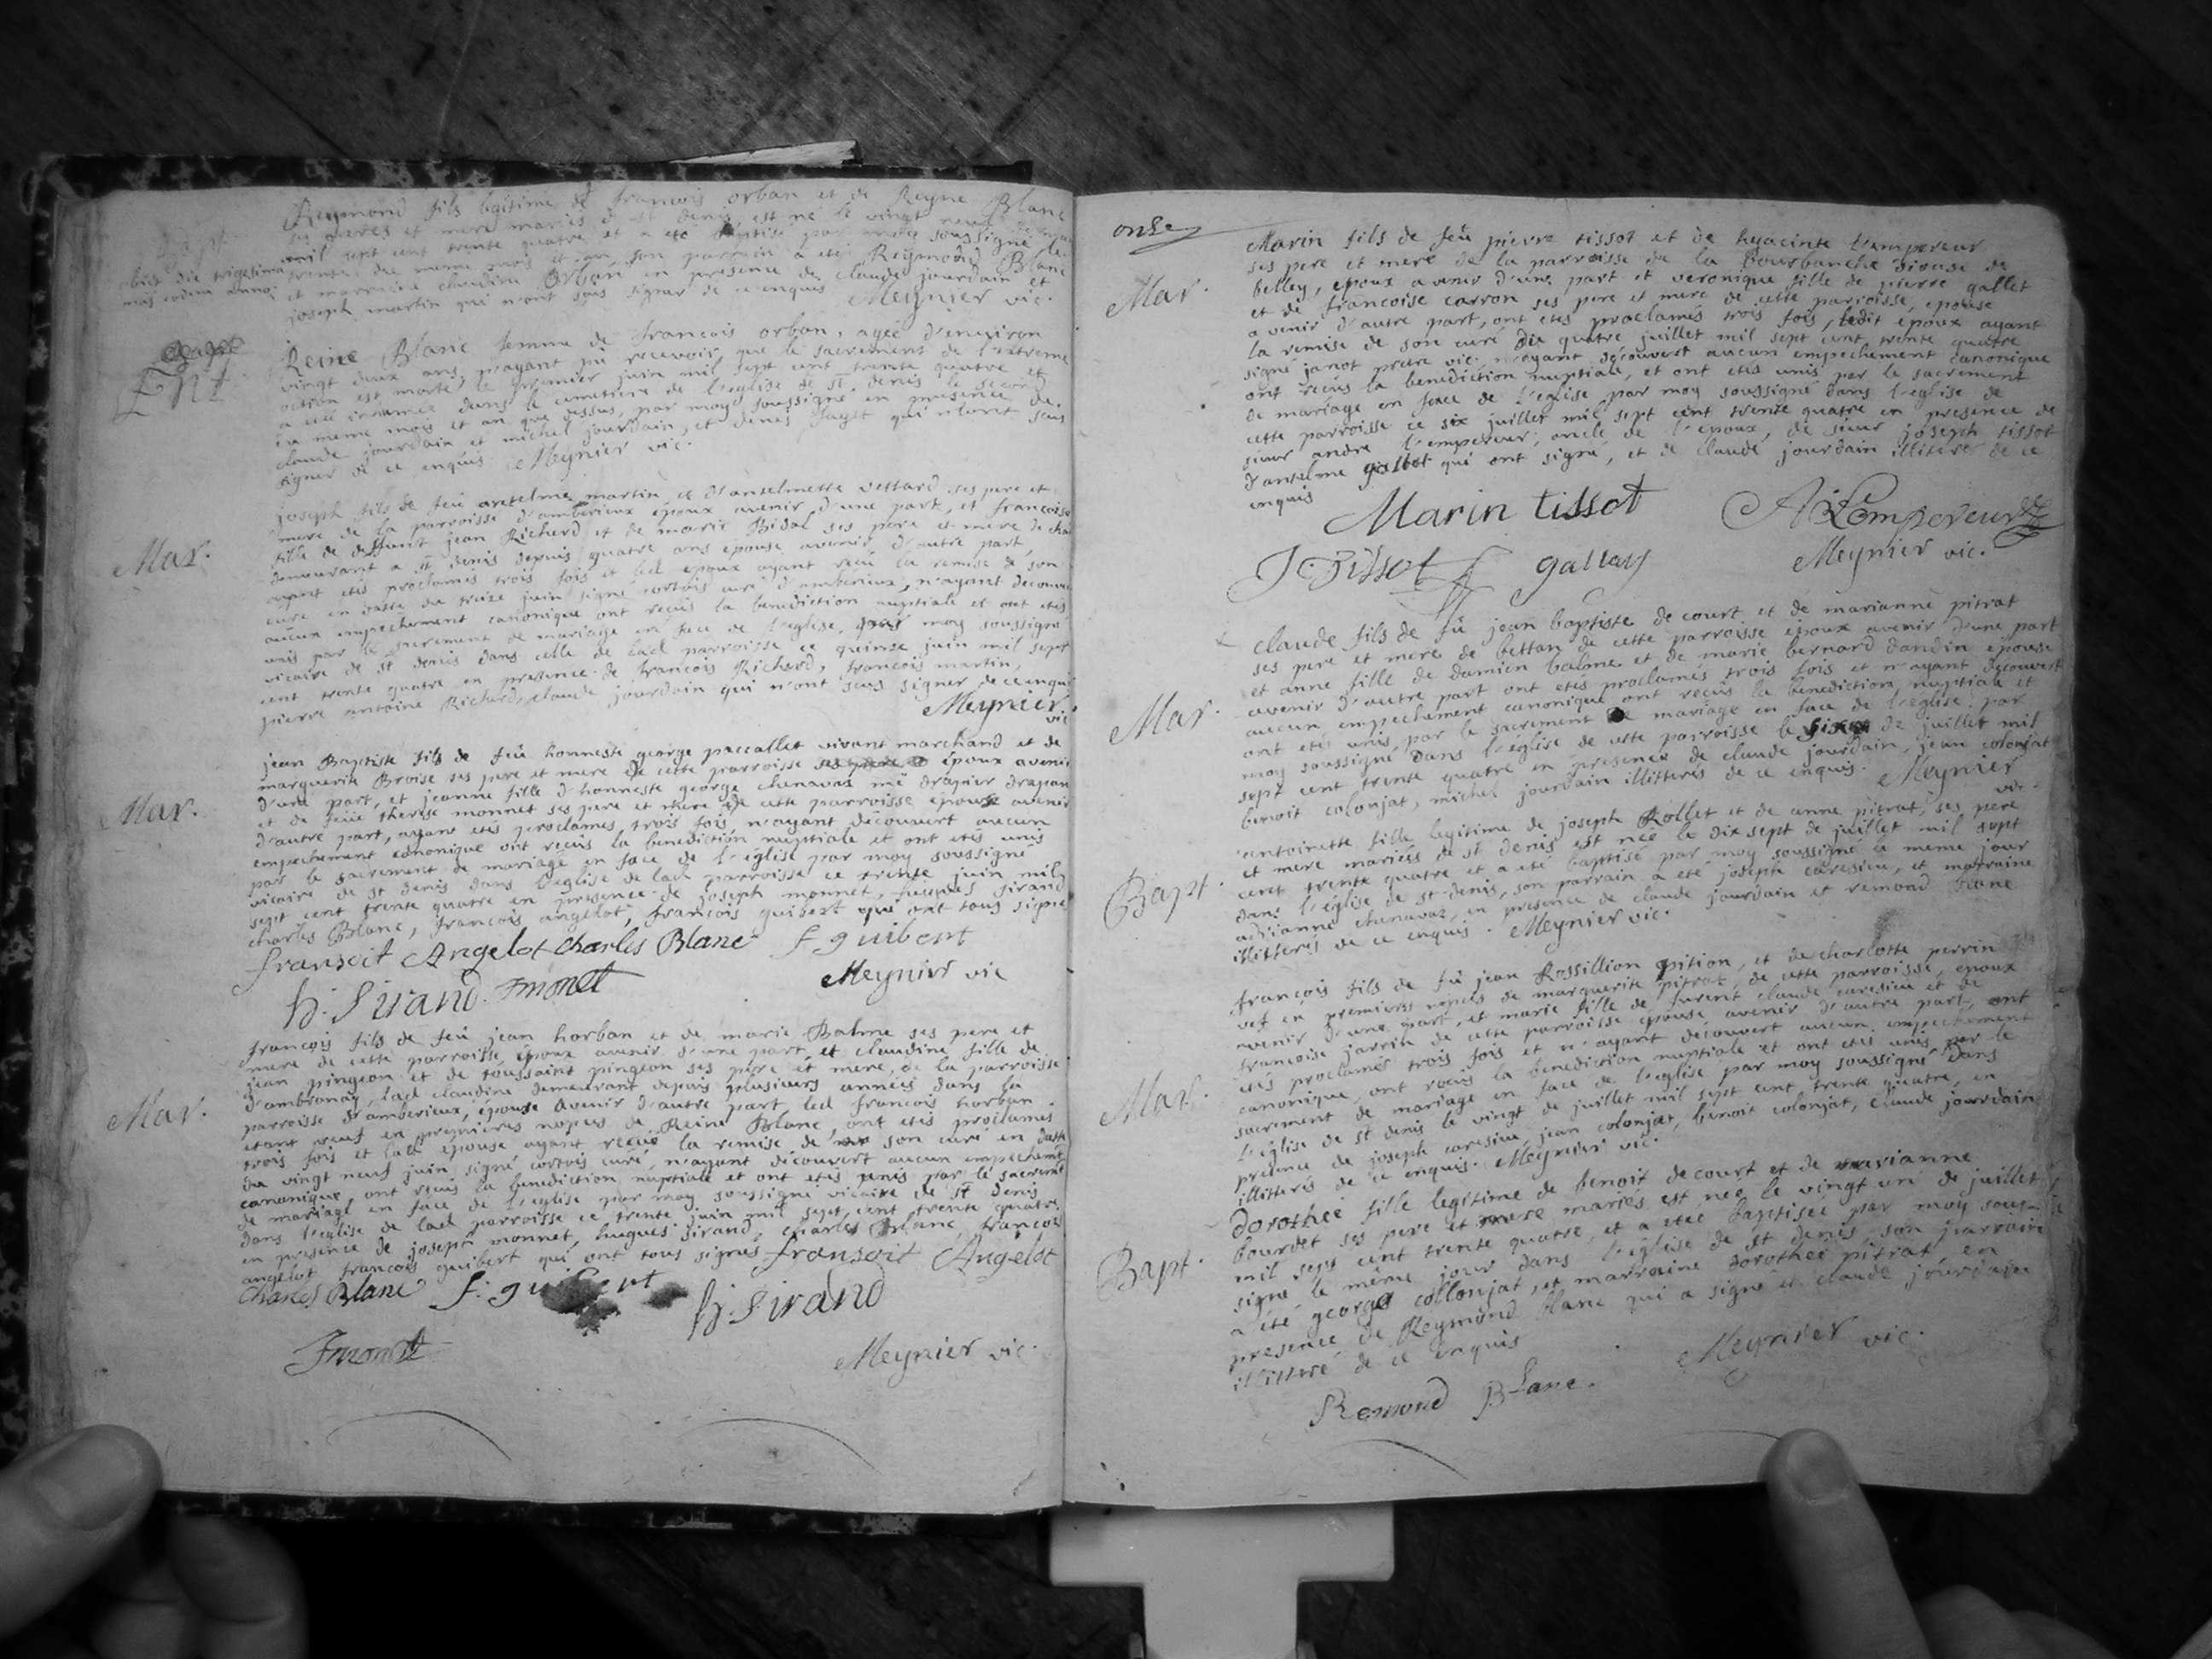 Reymond fils legitime de francois orban et de Reyne Blanc
ses peres et mere mariés d st denis, est né le vingt neuf
mil sept cent trente quatre et a eté baptisé par moy soussigné le
trente du meme mois et an, son parrain a eté Reymond Blanc
et marraine claudine Orban en presence de claude jourdain et
joseph martin qui n'ont sous signer de ce enquis Meynier vic.
obiit die trigesima
maÿ eodem anno.
Ent.
Reine Blanc femme de francois orban, agée d'environ
vingt deux ans, n'ayant pu recevoir que le sacrement de l'extreme
onction est morte le premier juin mil sept cent trente quatre et
a eté inhumée dans le cimetiere de l'eglise de st denis le second
du meme mois et an que dessus, par moy soussigné en presence de
claude jourdain et michel jourdain, et denis qui n'ont sous
signer de ce enquis Meynier vic.
Mar.
joseph fils de feu antelme martin et d'anselmette vettard ses pere et
mere de la parroisse d'amberieux epoux avenir d'une part, et francoise
fille de deffunt jean Richerd et de marie Bidal ses pere et mere de
demeurant a st denis depuis quatre ans epouse avenir d'autre part,
ayant etés proclamés trois fois et led epoux ayant reçu la remise de son
curé en datte du treize juin signé cortois curé d'amberieux, n'ayant decouvert
aucun empechement canonique ont reçus la benediction nuptiale et ont etés
unis par le sacrement de mariage en face de l'eglise, par moy soussigné
vicaire de st denis dans celle de lad parroisse ce quinze juin mil sept
cent trente quatre en presence de francois Richard, francois martin,
pierre antoine Richard, claude jourdain qui n'ont sous signer de ce enquis
Meynier
vic
Mar.
jean Baptiste fils de feü honneste george paccallet vivant marchand et de
marguerite Broise ses pere et mere de cette parroisse epoux avenir
d'une part, et jeanne fille d'honneste george chenavas me drapier drapan
et de feüe therese monnet ses pere et mere de cette parroisse epouse avenir
d'autre part, ayant etés proclamés trois fois n'ayant découvert aucun
empechement canonique ont reçus la benediction nuptiale et ont etés unis
par le sacrement de mariage en face de l'eglise par moy soussigné
vicaire de st denis dans l'eglise de lad parroisse ce trente juin mil
sept cent trente quatre en presence de joseph monnet, hugues sirand
charles Blanc, francois angelot, francois guibert qui ont tous signé
fransoit Angelot charles Blanc f guibert
h. Sirand. Jmonet Meynier vic
Mar.
francois fils de feü jean horban et de marie Balme ses pere et
mere de cette parroisse, epoux avenir d'une part, et claudine fille de
jean pingeon et de toussaint pingeon ses pere et mere, de la parroisse
d'ambronay, lad claudine demeurant depuis plusieurs années dans la
parroisse d'amberieux, épouse avenir d'autre part, led francois horban
etant veuf en premieres nopces de Reine Blanc, ont etés proclamés
trois fois et lad épouse ayant reçue la remise de son curé en datte
du vingt neuf juin signé cortois curé, n'ayant découvert aucun empechemt
canonique, ont reçus la benediction nuptiale et ont etés unis par le sacremt
de mariage en face de l'eglise par moy soussigné vicaire de st denis
dans l'eglise de lad parroisse ce trente juin mil sept cent trente quatre
en presence de joseph monnet, hugues sirand, charles Blanc, francois
angelot francois guibert qui ont tous signés fransoit Angelot
charles Blanc f. guibert h. Sirand
Jmonet Meynier vic.
onze
Mar.
Marin fils de feü pierre tissot et de hyacinte l'empereur
ses pere et mere de la parroisse de la Bourbanche diouse de
belley, epoux avenir d'une part et veronique fille de pierre gallet
et de francoise carron ses pere et mere de cette parroisse, epouse
avenir d'autre part, ont etés proclamés trois fois, ledit époux ayant
la remise de son curé du quatre juillet mil sept cent trente quatre
signé janot pretre vic. n'ayant découvert aucun empechement canonique
ont reçus la benediction nuptiale, et ont etés unis par le sacrement
de mariage en face de l'eglise par moy soussigné dans l'eglise de
cette parroisse ce six juillet mil sept cent trente quatre en presence de
sieur andre l'empereur, oncle de l'epoux, de sieur joseph tissot
d'anselme gallet qui ont signé, et de claude jourdain illiteré de ce
enquis
Marin tissot A Lempereur
J. Tissot gallay Meynier vic.
Mar.
claude fils de fü jean baptiste de court et de marianne pitrat
ses pere et mere de bettan de cette parroisse époux avenir d'une part
et anne fille de damien balme et de marie bernard dandin épouse
avenir d'autre part ont etés proclamés trois fois et n'ayant decouvert
aucun empechement canonique ont reçus la benediction nuptiale et
ont etés unis par le sacrement de mariage en face de l'eglise par
moy soussigné dans l'eglise de cette parroisse le de juillet mil
sept cent trente quatre en presence de claude jourdain, jean colonjat
benoit colonjat, michel jourdain illitterés de ce enquis. Meynier
vic.
Bapt.
antoinette fille legitime de joseph Rollet et de anne pitrat, ses pere
et mere mariés de st denis est née le dix sept de juillet mil sept
cent trente quatre et a eté baptisé par moy soussigné ce meme jour
dans l'église de st denis, son parrain a eté joseph caresieu, et marraine
adrianne chenavaz, en presence de claude jourdain et remond blanc
illitterés de ce enquis. Meynier vic.
Mar.
francois fils de fü jean Rossillion pition, et de charlotte perrin
vef en premieres nopces de marguerite pitrat, de cette parroisse, epoux
avenir d'une part, et marie fille de furent claude caresieu et de
francoise jarrin de cette parroisse épouse avenir d'autre part, ont
etés proclamés trois fois et n'ayant découvert aucun empechement
canonique, ont recus la benediction nuptiale et ont etés unis par le
sacrement de mariage en face de l'eglise par moy soussigné dans
l'église de st denis le vingt de juillet mil sept cent trente quatre, en
presence de joseph caresieu, jean colonjat, benoit colonjat, claude jourdain
illitterés de ce enquis. Meynier vic.
Bapt.
Dorothée fille legitime de benoit decourt et de marianne
bourdet ses pere et mere mariés est née le vingt un de juillet
mil sept cent trente quatre, et a etéé baptisée par moy sous-
signé le même jour dans l'église de st denis son parrain
a été george collonjat, et marraine dorothée pitrat, en
presence de Reymond blanc qui a signé et claude jourdain
illitteré de ce enquis
Meynier vic.
Remond Blanc.